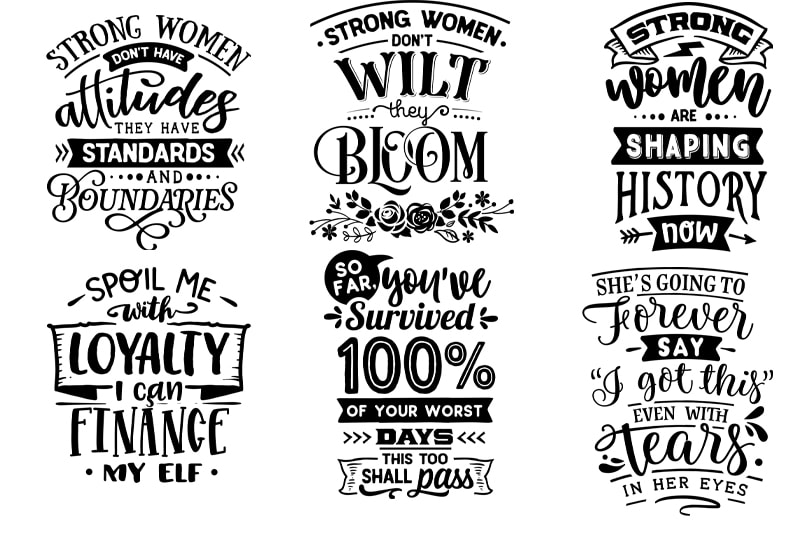 STRONG WOMEN
DON'T HAVE
attitudes
THEY HAVE
STANDARDS
AND
BOUNDARIES
STRONG WOMEN
DON'T
WILT
they
BLOOM
STRONG
women
ARE
SHAPING
HISTORY
NOW
SPOIL ME
with
LOYALTY
I can
FINANCE
MY ELF
SO
FAR,
you've
Survived
100%
OF YOUR WORST
DAYS
THIS TOO
SHALL pass
SHE'S GOING TO
Forever
SAY
"I got this"
EVEN WITH
tears
IN HER EYES